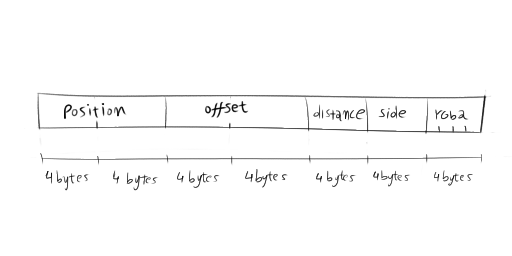 Position offset distance side rgba
4 bytes 4 bytes 4 bytes 4 bytes 4 bytes 4 bytes 4 bytes